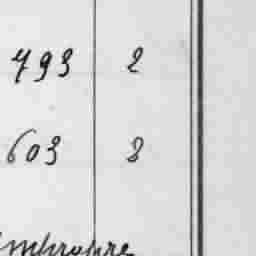 793 2
603 8